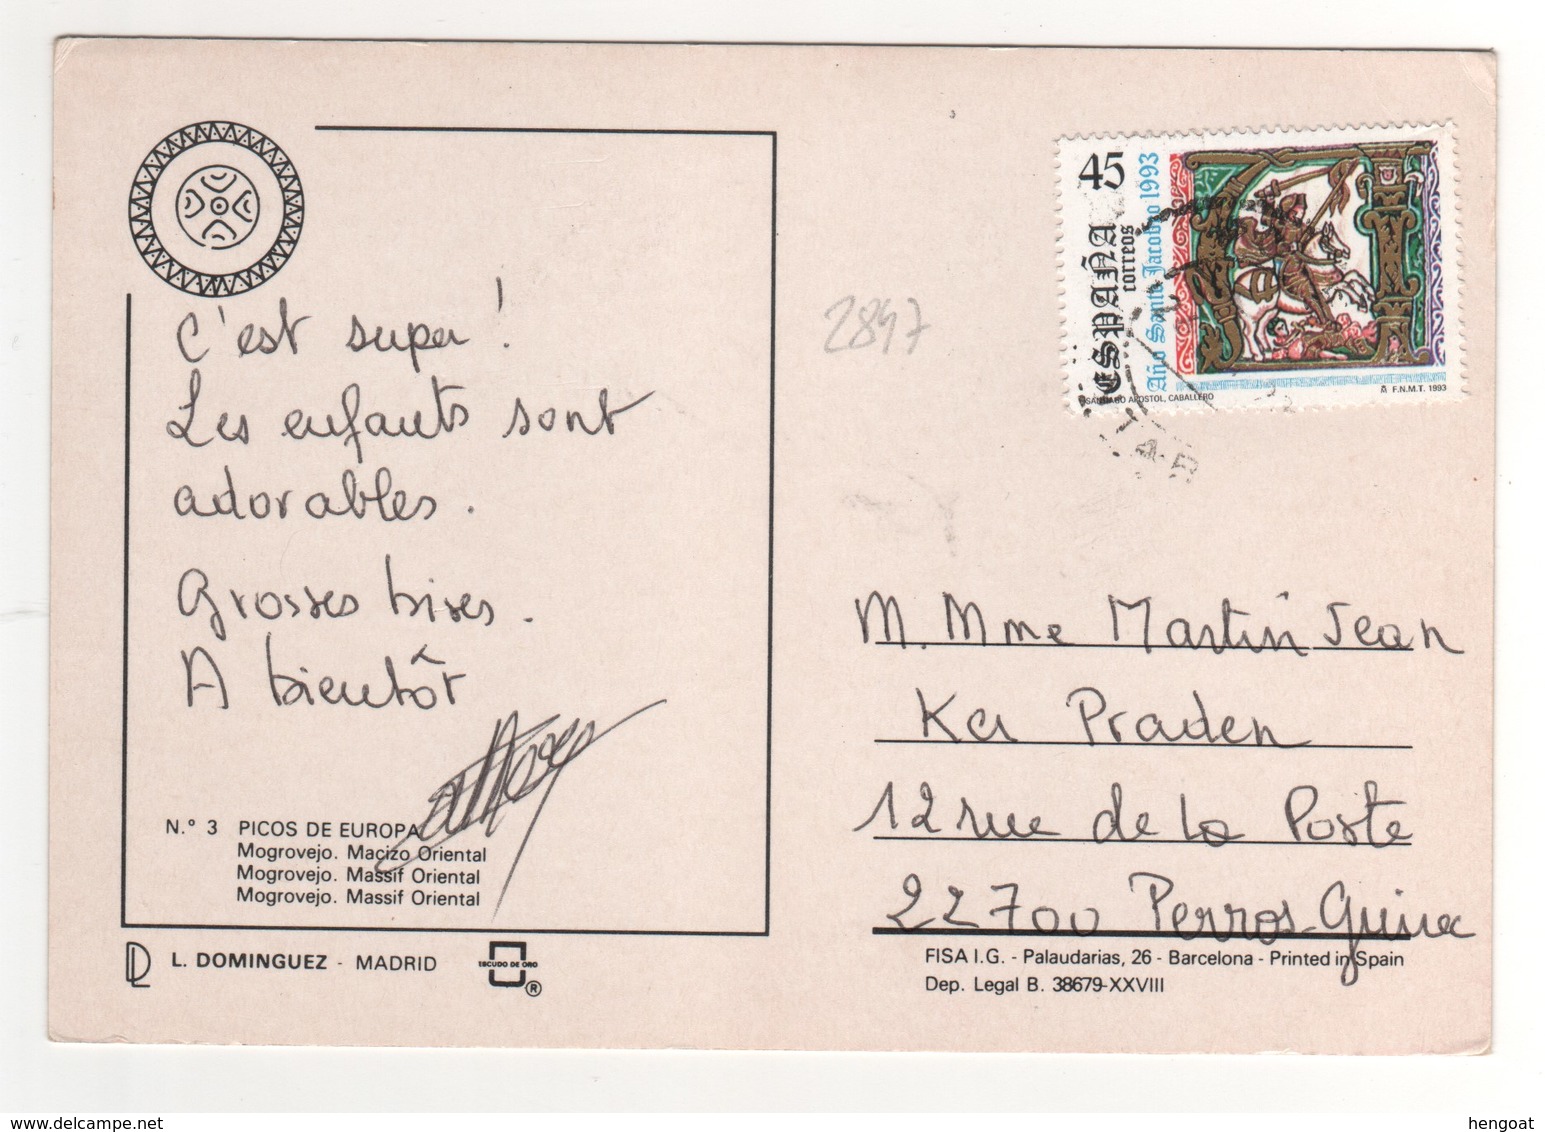 c'est super !
Les enfants sont
adorables.
Grosses bises.
A bientôt
N.º 3 PICOS DE EUROPA
Mogrovejo. Macizo Oriental
Mogrovejo. Massif Oriental
Mogrovejo. Massif Oriental
DL L. DOMINGUEZ - MADRID
ESCUDO DE ORO
®
2847
45
ESPAÑA
correos
Año Santo Jacobeo 1993
SANTIAGO APOSTOL, CABALLERO
F.N.M.T. 1993
TAB
M. Mme Martin Jean
Ker Praden
12 rue de la Poste
22700 Perros-Guirec
FISA I.G. - Palaudarias, 26 - Barcelona - Printed in Spain
Dep. Legal B. 38679-XXVIII
delcampe.net
hengoat